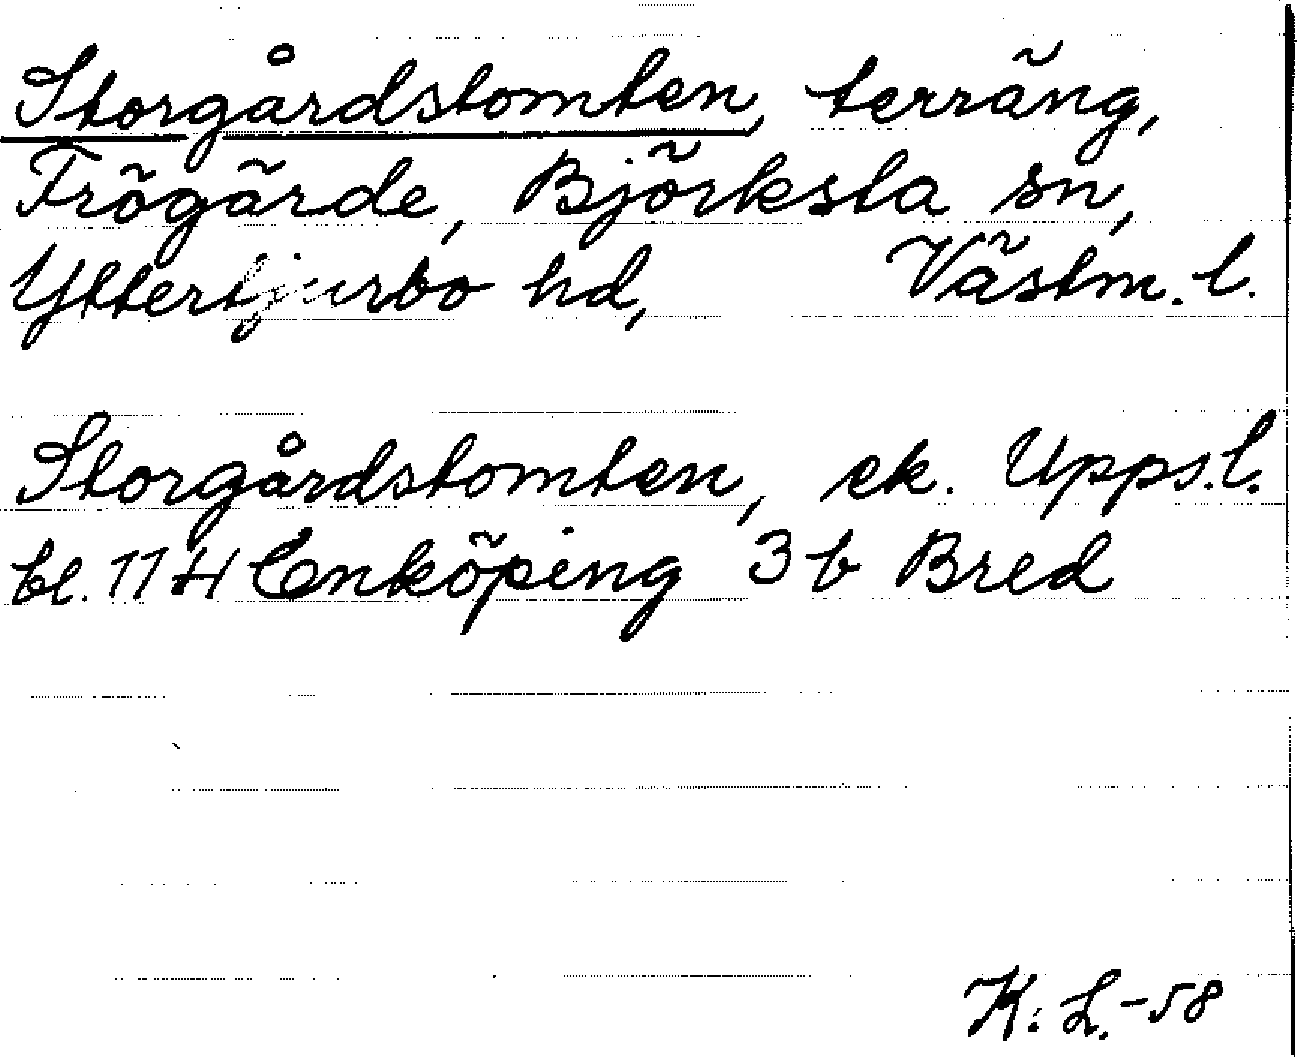 Storgårdstomten, terräng,
Frögärde, Björksta sn,
Yttertjurbo hd, Västm. l.
Storgårdstomten, ek. Upps.l.
bl. 11 H Enköping 3 b Bred
K. L.-58